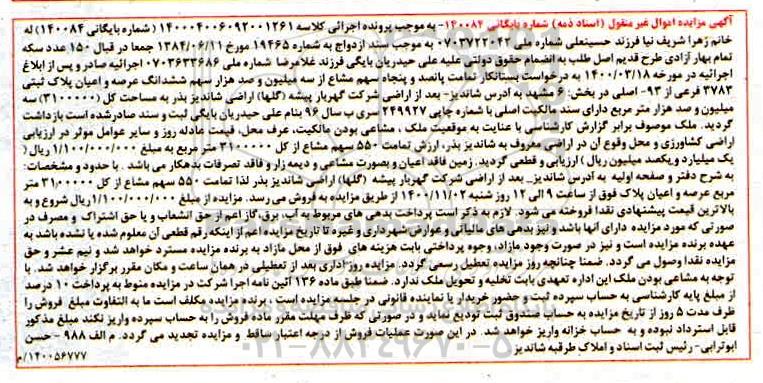 آگهی مزایده اموال غیر منقول (اسناد ذمه) شماره بایگانی ۱۴۰۰۸۴- به موجب پرونده اجرائی کلاسه ۱۴۰۰۰۴۰۰۶۰۹۲۰۰۱۲۶۱ (شماره بایگانی ۱۴۰۰۸۴) له
خانم زهرا شریف نیا فرزند حسینعلی شماره ملی ۰۷۰۳۷۲۲۰۴۲ به موجب سند ازدواج به شماره ۱۹۴۶۵ مورخ ۱۳۸۴/۰۶/۱۱ جمعا در قبال ۱۵۰ عدد سکه
تمام بهار آزادی طرح قدیم اصل طلب به انضمام حقوق دولتی علیه علی حیدریان بایگی فرزند غلامرضا شماره ملی ۰۷۰۳۶۳۳۶۸۶ اجرائیه صادر و پس از ابلاغ
اجرائیه در مورخه ۱۴۰۰/۰۳/۱۸ به درخواست بستانکار تمامت پانصد و پنجاه سهم مشاع از سه میلیون و صد هزار سهم ششدانگ عرصه و اعیان پلاک ثبتی
۳۷۸۳ فرعی از ۹۳- اصلی در بخش: ۶ مشهد به آدرس شاندیز- بعد از اراضی شرکت گهریار پیشه (گلها) اراضی شاندیز بذر به مساحت کل (۳۱۰۰۰۰۰) سه
میلیون و صد هزار متر مربع دارای سند مالکیت اصلی با شماره چاپی ۲۴۹۹۲۷ سری ب سال ۹۶ بنام علی حیدریان بایگی ثبت و سند صادرشده است بازداشت
گردید. ملک موصوف برابر گزارش کارشناسی با عنایت به موقعیت ملک ، مشاعی بودن مالکیت، عرف محل، قیمت عادله روز و سایر عوامل موثر در ارزیابی
اراضی کشاورزی و محل وقوع آن در اراضی معروف به شاندیز بذر، ارزش تمامت ۵۵۰ سهم مشاع از کل ۳۱۰۰۰۰۰ متر مربع به مبلغ ۱/۱۰۰/۰۰۰/۰۰۰ ریال (
یک میلیارد و یکصد میلیون ریال ) ارزیابی و قطعی گردید. زمین فاقد اعیان و بصورت مشاعی و دیمه زار و فاقد تصرفات بدهکار می باشد . با حدود و مشخصات:
به شرح دفتر و صفحه اولیه به آدرس شاندیز_ بعد از اراضی شرکت گهریار پیشه (گلها) اراضی شاندیز بذر لذا تمامت ۵۵۰ سهم مشاع از کل ۳۱٫۰۰۰۰۰ متر
مربع عرصه و اعیان پلاک فوق از ساعت ۹ الی ۱۲ روز شنبه ۱۴۰۰/۱۱/۰۲ از طریق مزایده به فروش می رسد. مزایده از مبلغ ۱/۱۰۰/۰۰۰/۰۰۰ریال شروع و به
بالاترین قیمت پیشنهادی نقدا فروخته می شود. لازم به ذکر است پرداخت بدهی های مربوط به آب، برق،گاز اعم از حق انشعاب و یا حق اشتراک و مصرف در
صورتی که مورد مزایده دارای آنها باشد و نیز بدهی های مالیاتی و عوارض شهرداری و غیره تا تاریخ مزایده اعم از اینکه رقم قطعی آن معلوم شده یا نشده باشد به
عهده برنده مزایده است و نیز در صورت وجود مازاد، وجوه پرداختی بابت هزینه های فوق از محل مازاد به برنده مزایده مسترد خواهد شد و نیم عشر و حق
مزایده نقدا وصول می گردد. ضمنا چنانچه روز مزایده تعطیل رسمی گردد، مزایده روز اداری بعد از تعطیلی در همان ساعت و مکان مقرر برگزار خواهد شد. با
توجه به مشاعی بودن ملک این اداره تعهدی بابت تخلیه و تحویل ملک ندارد. ضمنا طبق ماده ۱۳۶ آئین نامه اجرا شرکت در مزایده منوط به پرداخت ۱۰ درصد
از مبلغ پایه کارشناسی به حساب سپرده ثبت و حضور خریدار یا نماینده قانونی در جلسه مزایده است ، برنده مزایده مکلف است ما به التفاوت مبلغ فروش را
ظرف مدت ۵ روز از تاریخ مزایده به حساب صندوق ثبت تودیع نماید و در صورتی که ظرف مهلت مقرر مانده فروش را به حساب سپرده واریز نکند مبلغ مذکور
قابل استرداد نبوده و به حساب خزانه واریز خواهد شد. در این صورت عملیات فروش از درجه اعتبار ساقط و مزایده تجدید می گردد. م الف ۹۸۸ -حسن
ابوترابی- رئیس ثبت اسناد و املاک طرقبه شاندیز
۱۴۰۰۵۶۷۷۷/م
۰۲۱-۸۸۳۴۹۶۷۰-۵